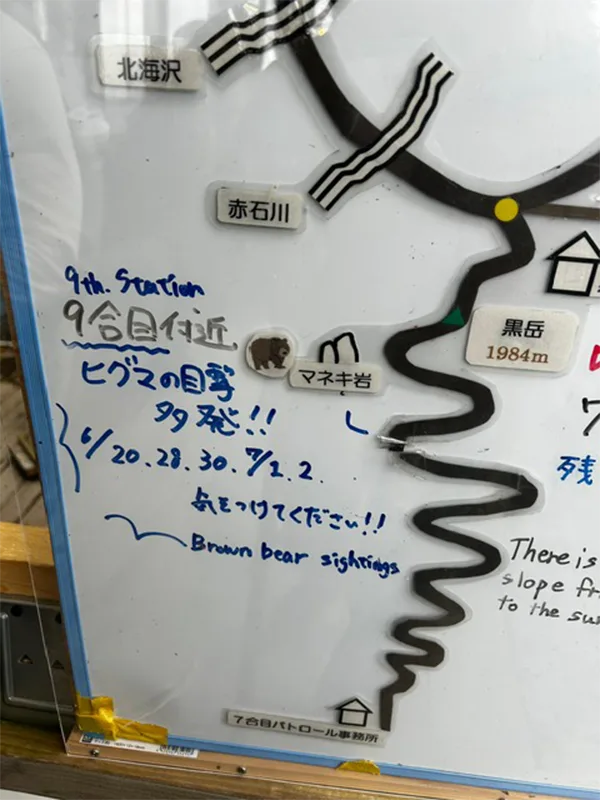 北海沢
赤石川
9th. Station
9合目付近
ヒグマの目撃
多発!!
6/20.28.30.7/1.2.
気をつけてください!!
Brown bear sightings
マネキ岩
黒岳
1984m
7
残
There is
slope
to the
7合目パトロール事務所